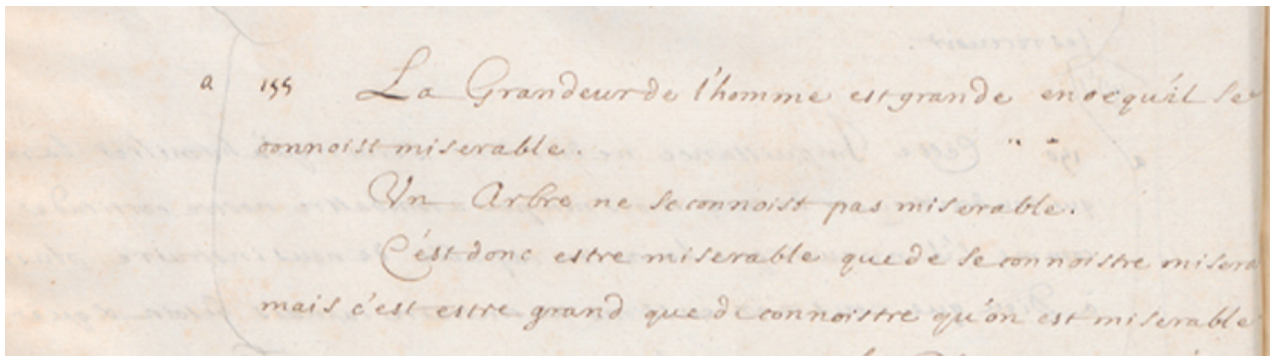 a 155 La Grandeur de l'homme est grande en ce qu'il se
connoist miserable.
Un Arbre ne se connoist pas miserable.
C'est donc estre miserable que de se connoistre misera
mais c'est estre grand que de connoistre qu'on est miserable